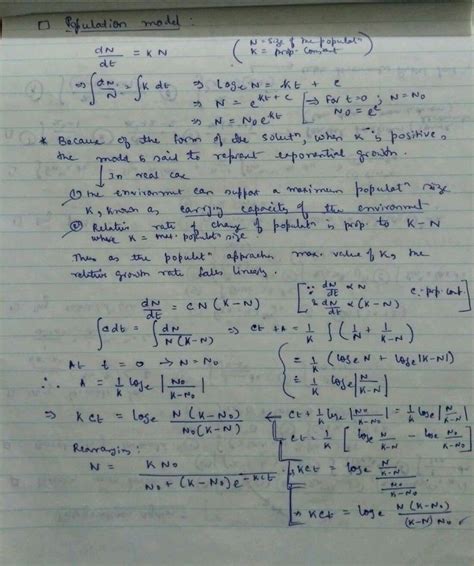 □ Population model :
dN/dt = KN ( N = size of the populatn
K = prop. constant )
⇒ ∫ dN/N = ∫ K dt ⇒ loge N = Kt + c
⇒ N = e^(Kt + c) [ ⇒ For t=0 ; N = N0
⇒ N = N0 e^(Kt) N0 = e^c
* Because of the form of the solutn, when K is positive,
the model is said to reprent exponential growth.
↓ In real cae
① The environmt can suppot a maximum populatn size
K, known as carrying capacity of the environmt
② Relativ rate of change of populatn is prop. to K-N
where K = max. populatn size
Thus as the populatn approaches max. value of K, the
relative growth rate falls linearly.
dN/dt = CN (K-N) [ ∵ dN/dt ∝ N C: prop. cont.
& dN/dt ∝ (K-N) ]
∫ c dt = ∫ dN/N(K-N) ⇒ ct + A = 1/K ∫ (1/N + 1/K-N)
At t = 0 → N = N0 = 1/K (loge N + loge |K-N|)
∴ A = 1/K loge |N0/K-N0| = 1/K loge |N/K-N|
⇒ Kct = loge N(K-N0)/N0(K-N) ← ct + 1/K loge |N0/K-N0| = 1/K loge |N/K-N|
ct = 1/K [ loge N/K-N - loge N0/K-N0 ]
Rearranging :
N = K N0/N0 + (K-N0) e^(-Kct) Kct = loge (N/K-N)/(N0/K-N0)
→ Kct = loge N(K-N0)/(K-N) N0